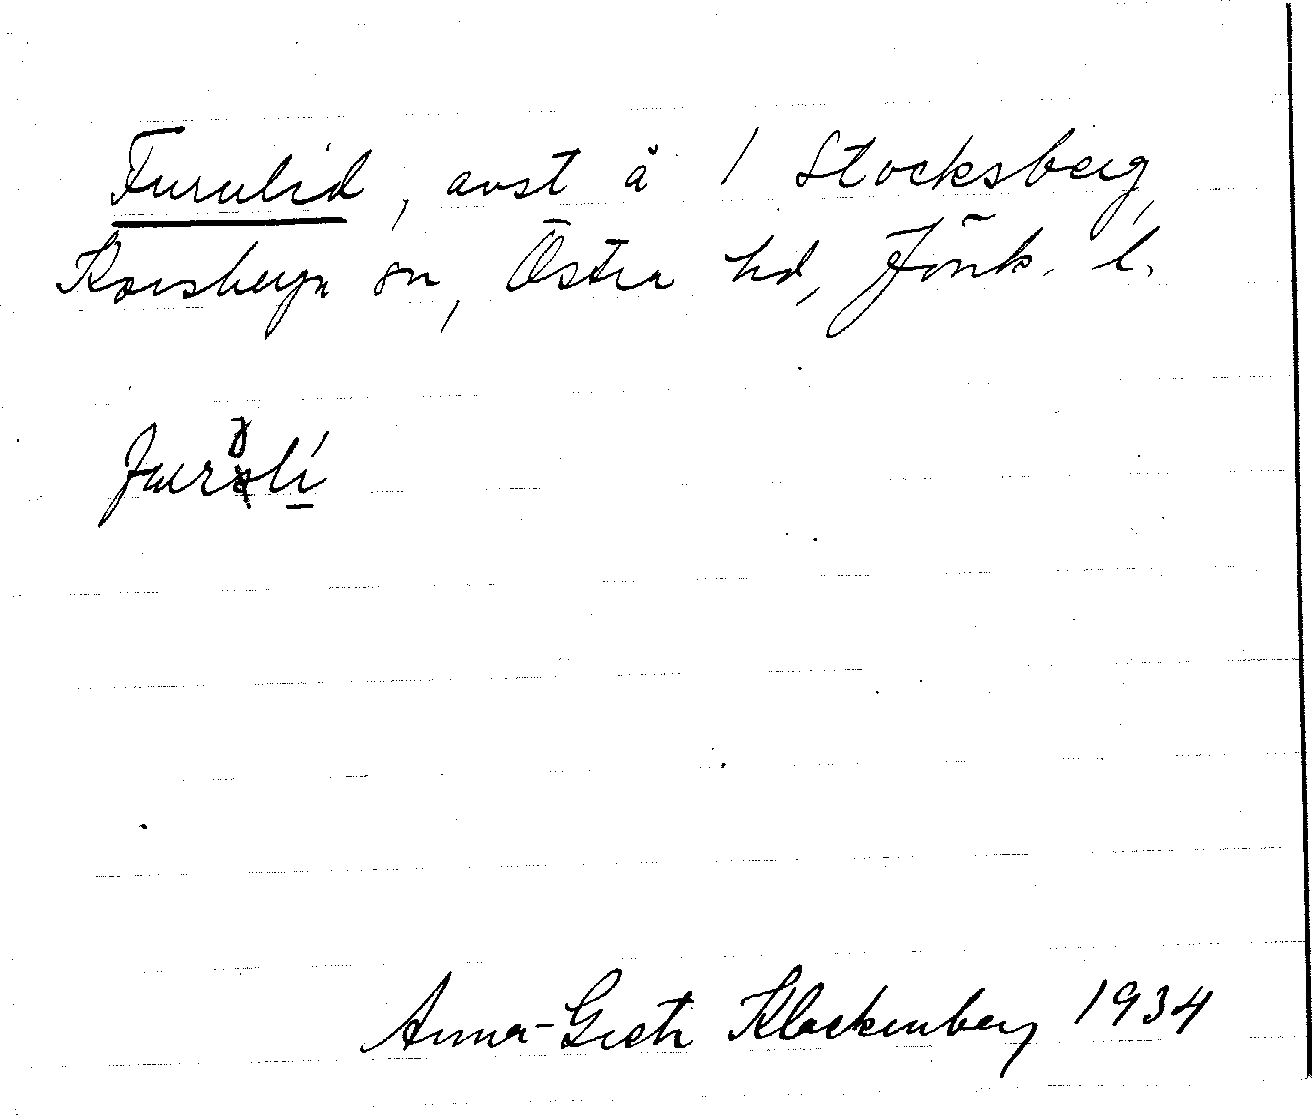 Furulid, avst å 1 Stocksberg,
Korsberga sn, Östra hd, Jönk. l.
furəlí
Anna-Greta Klockenberg 1934